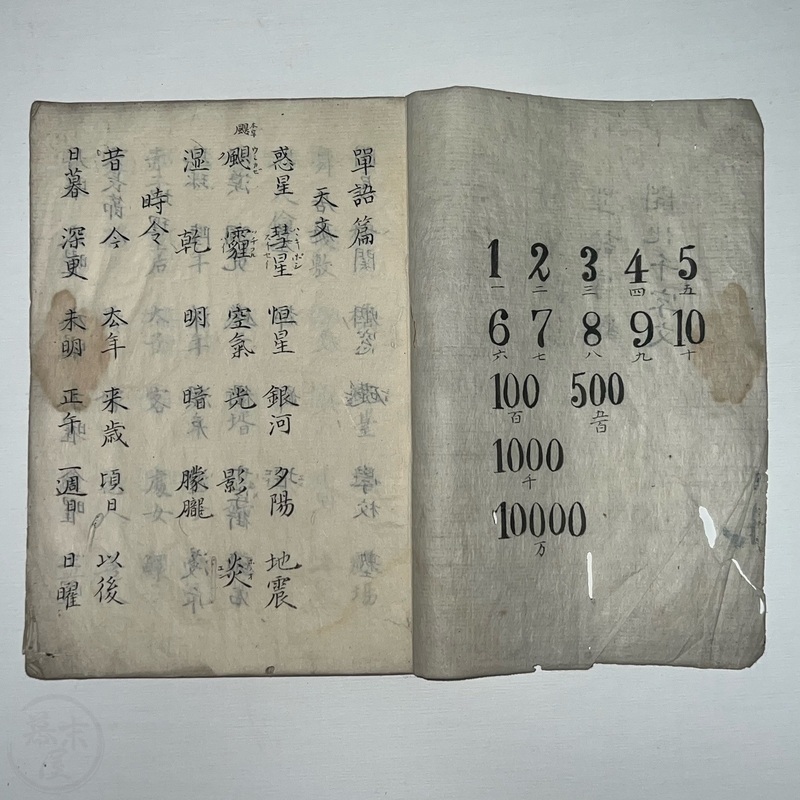 1 2 3 4 5
一 二 三 四 五
6 7 8 9 10
六 七 八 九 十
100 500
百 五百
1000
千
10000
万
單語篇
天文
惑星 彗星 恒星 銀河 夕陽 地震
颶 霾 空氣 光 影 炎
湿 乾 明 暗 朦朧
時令
昔 今 去年 来歳 頃日 以後
日暮 深更 未明 正午 一週日 日曜
幕末屋